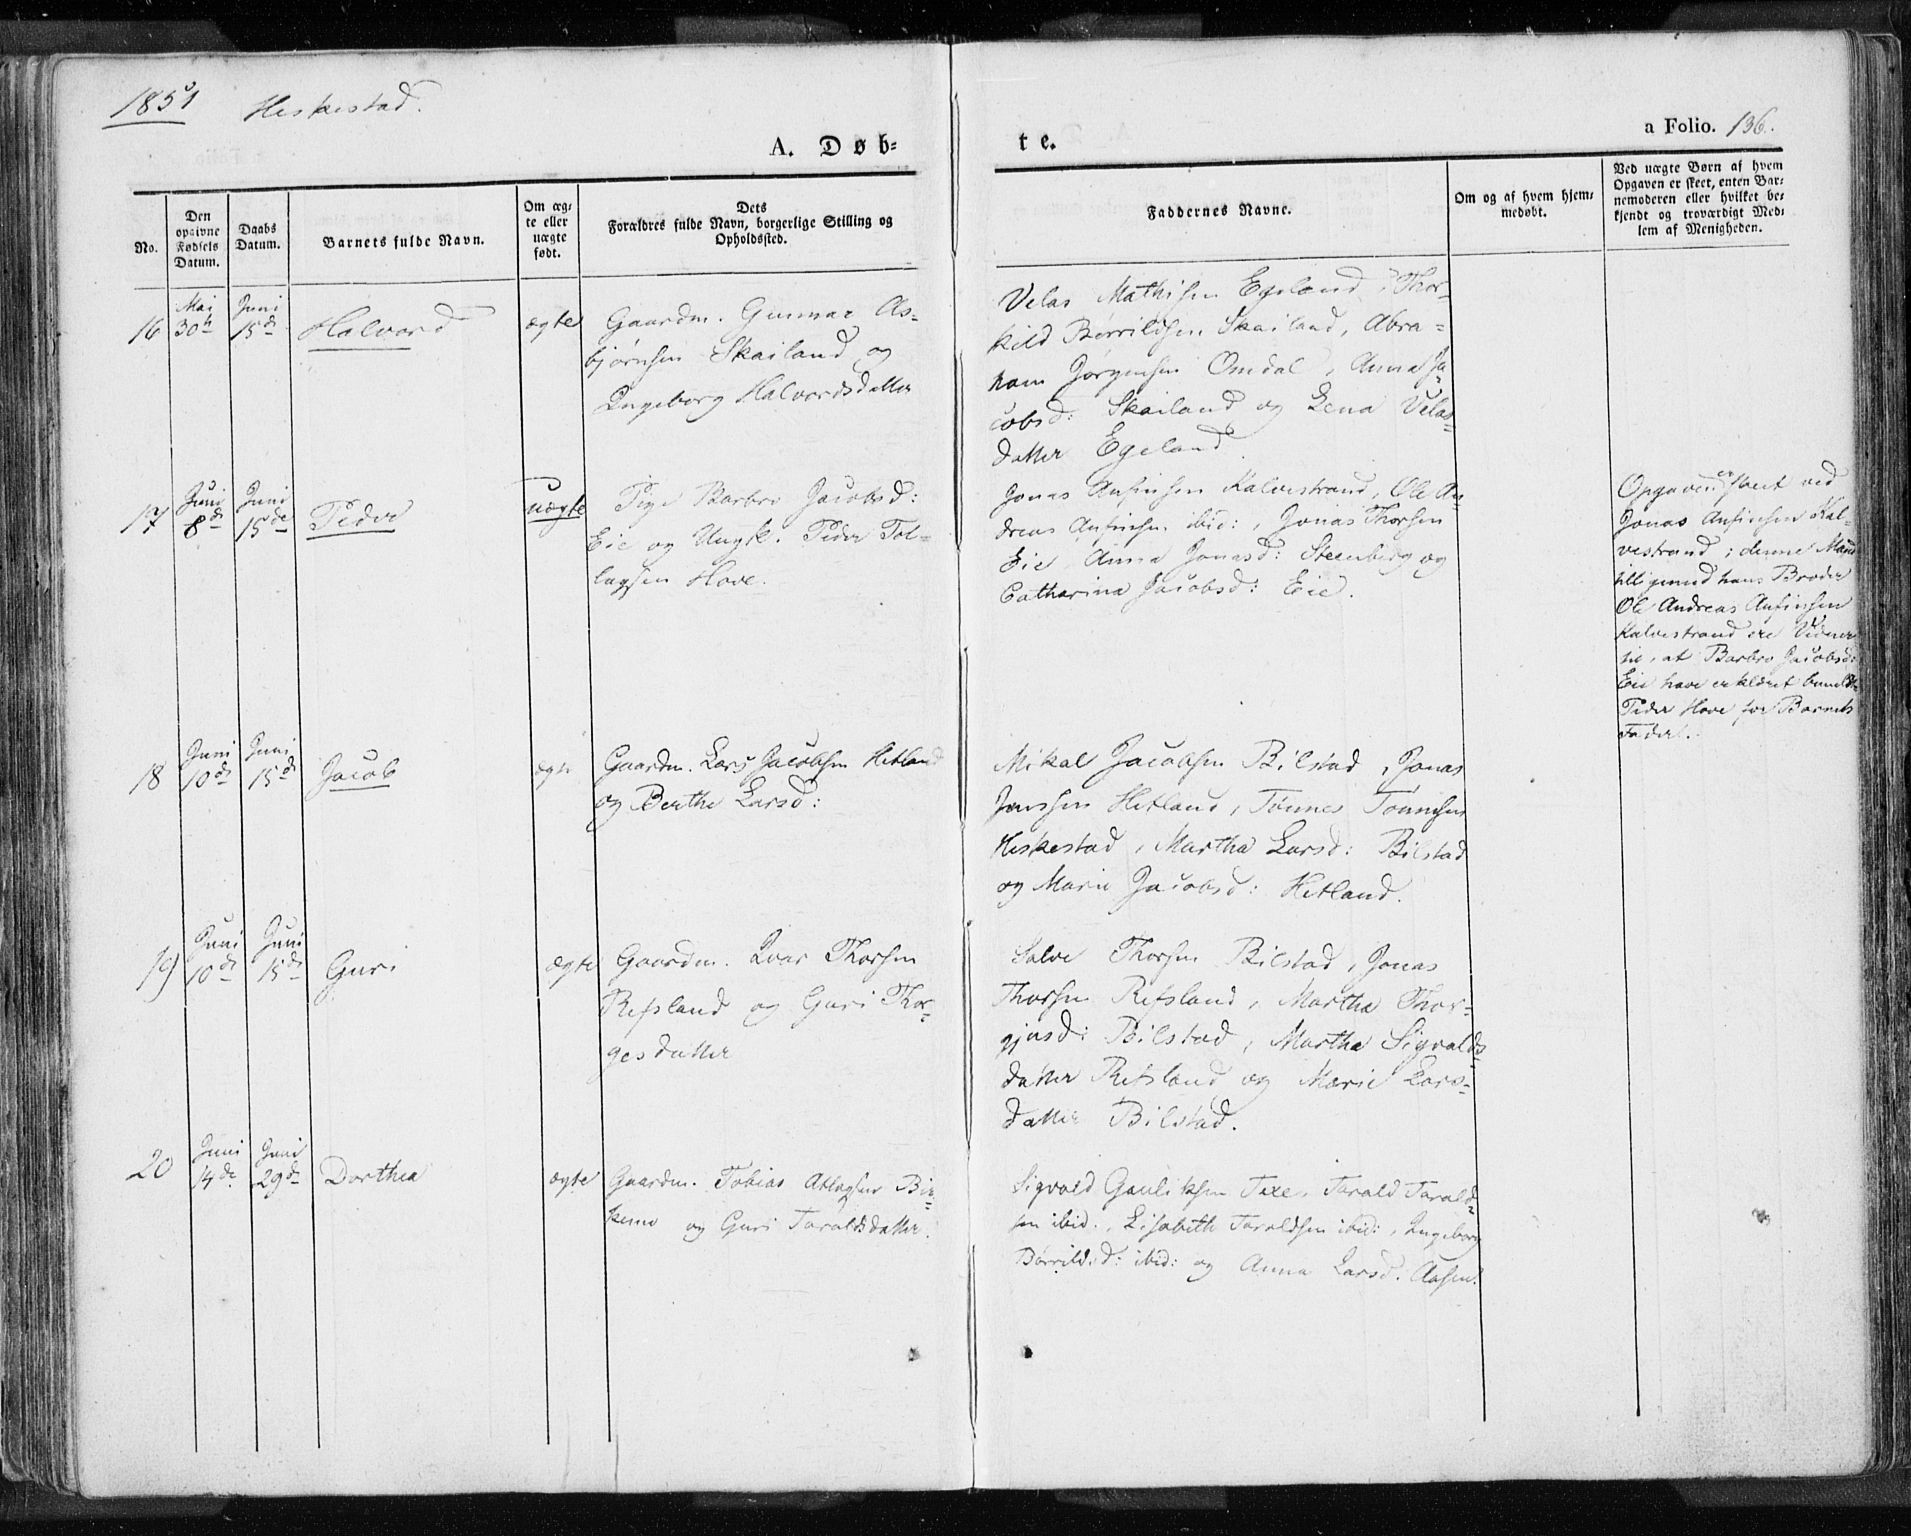 1851 Heskestad.
A. Døb-
te.
a Folio. 136.
No.
Den
opgivne
Fødsels
Datum.
Daabs
Datum.
Barnets fulde Navn.
Om æg-
te eller
uægte
født.
Dets
Forældres fulde Navn, borgerlige Stilling og
Opholdssted.
Faddernes Navne.
Om og af hvem hjem-
medøbt.
Ved uægte Børn af hvem
Opgaven er skeet, enten Bar-
nemoderen eller hvilket be-
kjendt og troværdigt Med-
lem af Menigheden.
16
Mai
30te
Juni
15de
Halvord
ægte
Gaardm. Gunnar As-
bjørnsen Skailand og
Ingeborg Halvordsdatter
Velas Mathisen Egeland, Thor-
kild Børrildsen Skailand, Abra-
ham Jørgensen Omdal, Anna Ja-
cobsd: Skailand og Lena Velas-
datter Egeland.
17
Juni
8de
Juni
15de
Peder
uægte
Pige Barbro Jacobsd:
Eie og Ungk. Peder Tol-
lagsen Hove.
Jonas Anfinsen Kalvestrand, Ole An-
dreas Anfinsen ibid:, Jonas Thorsen
Eie, Anna Jonasd: Steenberg og
Catharina Jacobsd: Eie.
Opgaven er skeet ved
Jonas Anfinsen Kal-
vestrand; denne Mand
tilligemed hans Broder
Ole Andreas Anfinsen
Kalvestrand ere Vidner
til, at Barbro Jacobsd:
Eie have erklæret bemeldte
Peder Hove for Barnets
Fader.
18
Juni
10de
Juni
15de
Jacob
ægte
Gaardm. Lars Jacobsen Hetland
og Berthe Larsd:
Mikal Jacobsen Bilstad, Jonas
Jonssen Hetland, Tønnes Tønnesen
Heskestad, Martha Larsd: Bilstad
og Marie Jacobsd: Hetland.
19
Juni
10de
Juni
15de
Guri
ægte
Gaardm. Ivar Thorsen
Refsland og Guri Thor-
gesdatter
Salve Thorsen Bilstad, Jonas
Thorsen Refsland, Martha Thor-
gjusd: Bilstad, Martha Sigvalds-
datter Refsland og Marie Lars-
datter Bilstad.
20
Juni
14de
Juni
29de
Dorthea
ægte
Gaardm. Tobias Atlagsen Bir-
kemo og Guri Taraldsdatter.
Sigvald Gauliksen Texe, Tarald Tarald-
sen ibid., Lisabeth Taraldsen ibid:, Ingeborg
Børrildsd: ibid: og Anna Larsd. Aasen.